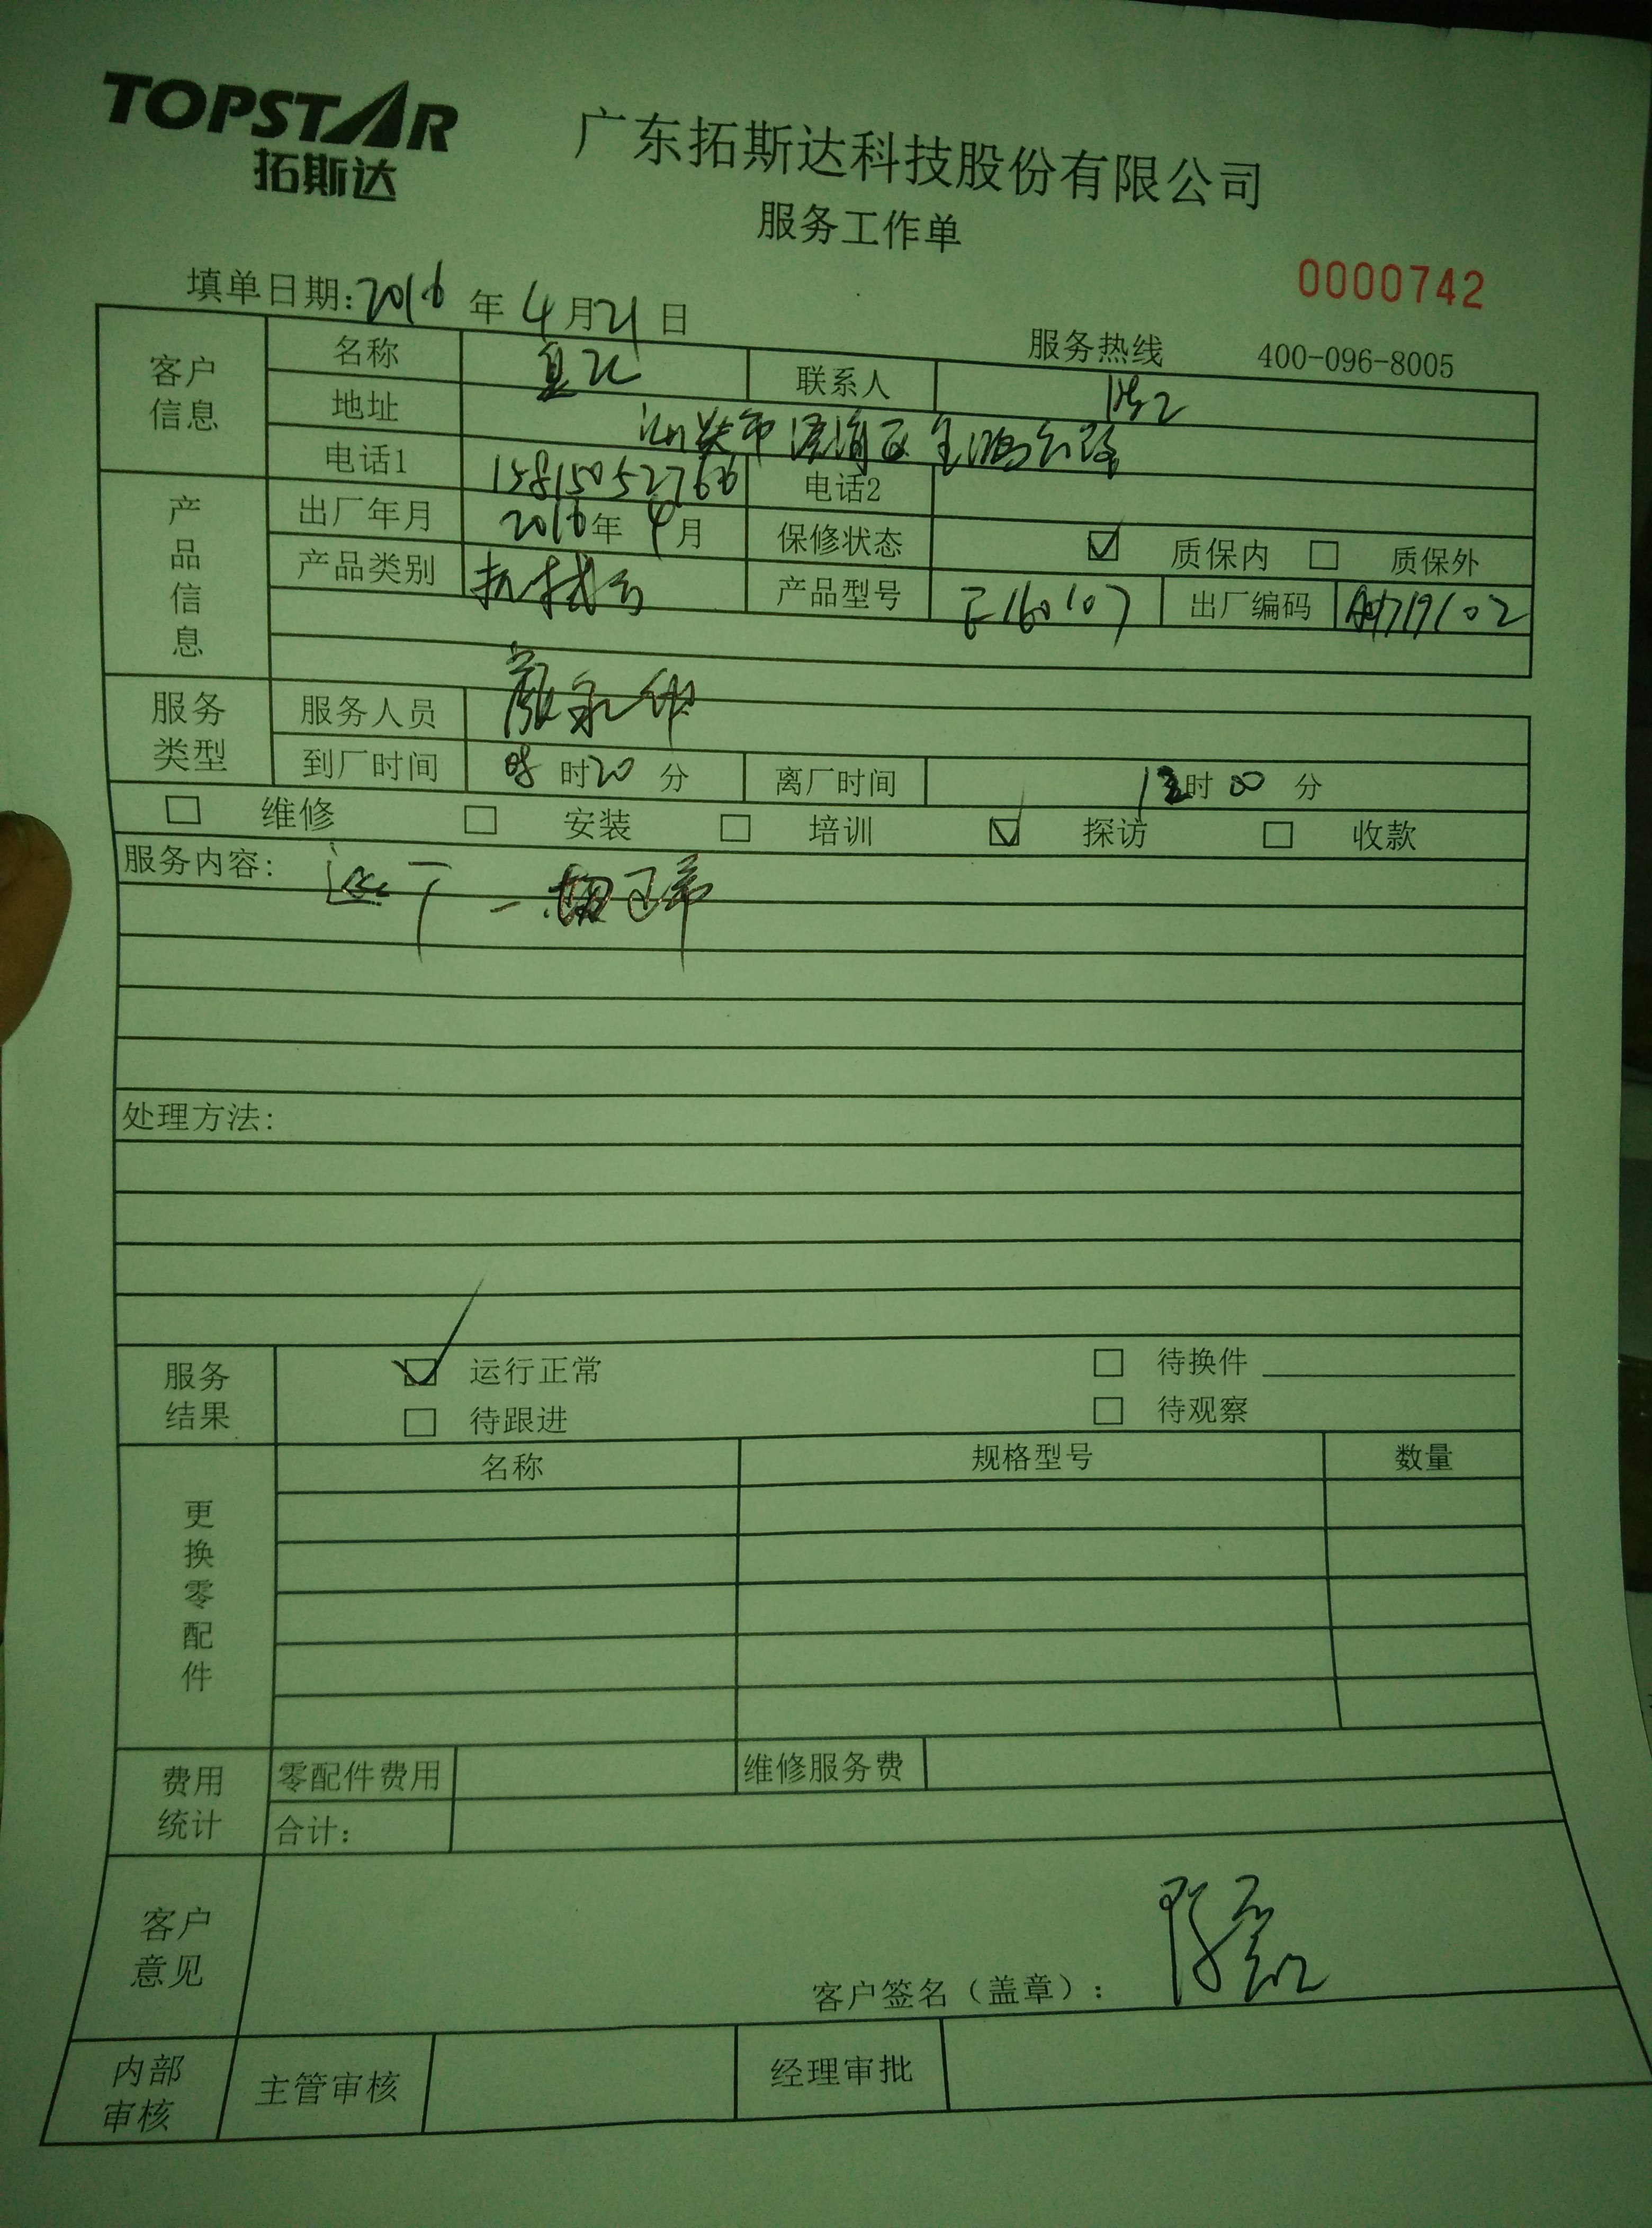 TOPSTAR
拓斯达
广东拓斯达科技股份有限公司
服务工作单
0000742
填单日期:2016年4月21日
服务热线 400-096-8005
客户信息
名称 联系人
地址 市 区
电话1 15815052766 电话2
产品信息
出厂年月 2016年4月 保修状态 ☑ 质保内 □ 质保外
产品类别 机械手 产品型号 出厂编码
服务类型
服务人员 颜永
到厂时间 08时20分 离厂时间 12时00分
□ 维修 □ 安装 □ 培训 ☑ 探访 □ 收款
服务内容: 一切正常
处理方法:
服务结果
☑ 运行正常 □ 待换件
□ 待跟进 □ 待观察
更换零配件
名称 规格型号 数量
费用统计
零配件费用 维修服务费
合计:
客户意见
客户签名(盖章): 陈
内部审核
主管审核 经理审批